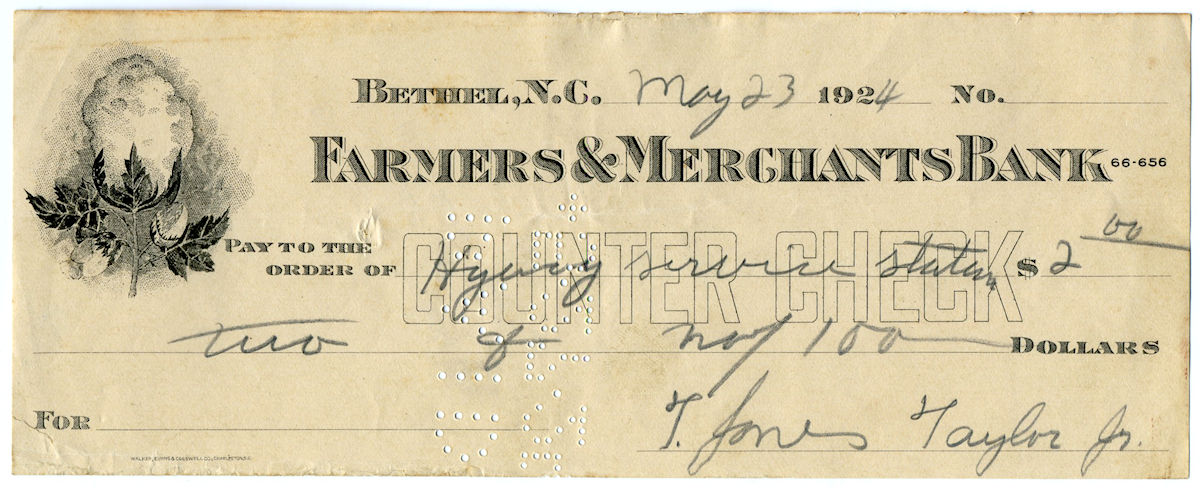 BETHEL, N.C. May 23 1924 No.
FARMERS & MERCHANTS BANK 66-656
COUNTER CHECK
PAY TO THE
ORDER OF Hyway service station $ 2 00
two & no/100 DOLLARS
FOR
T. Jones Taylor Jr.
WALKER, EVANS & COGSWELL CO., CHARLESTON, S.C.